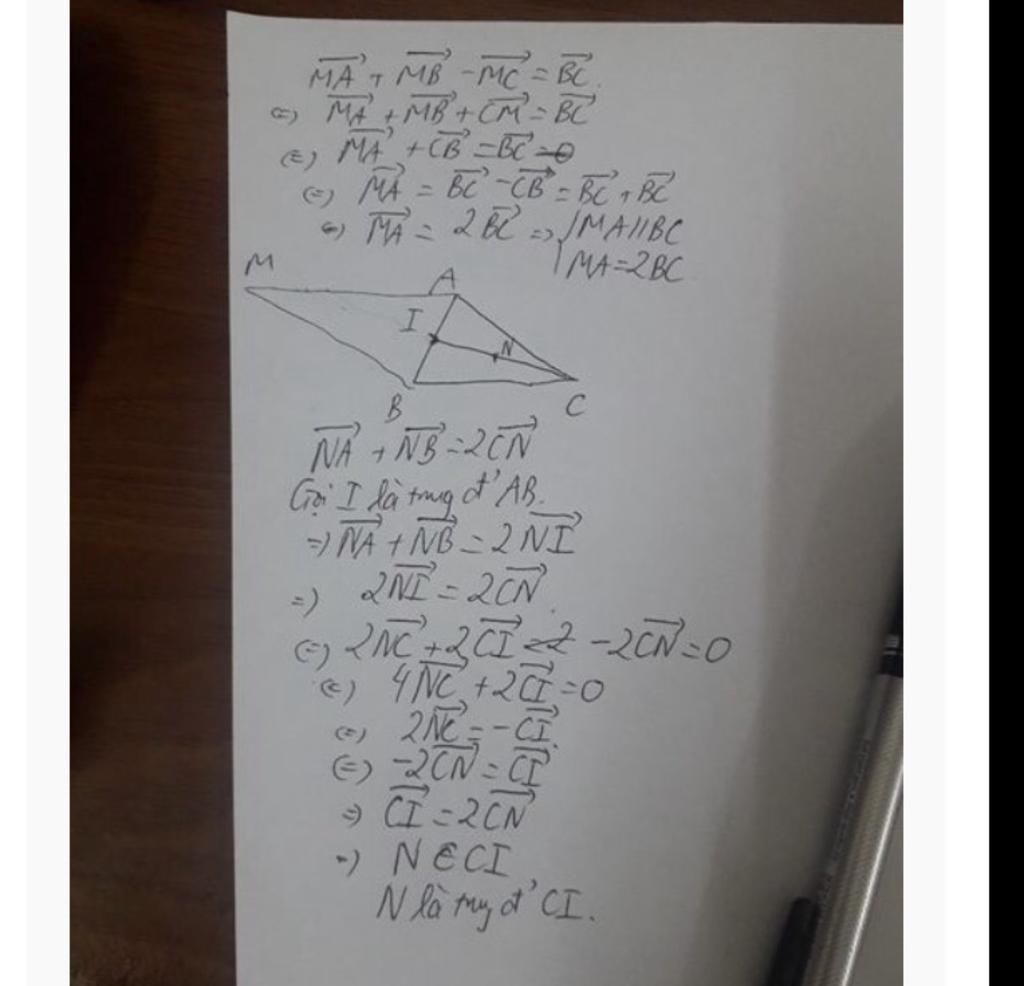 MA + MB - MC = BC.
(=) MA + MB + CM = BC
(=) MA + CB = BC = 0
(=) MA = BC - CB = BC + BC
(=) MA = 2BC => { MA // BC
MA = 2BC
M
A
I
N
B
C
NA + NB = 2CN
Gọi I là trung đ' AB.
=) NA + NB = 2NI
=) 2NI = 2CN.
(=) 2NC + 2CI = 2 - 2CN = 0
(=) 4NC + 2CI = 0
(=) 2NC = -CI.
(=) -2CN = CI
=) CI = 2CN
=) N ∈ CI
N là trug đ' CI.